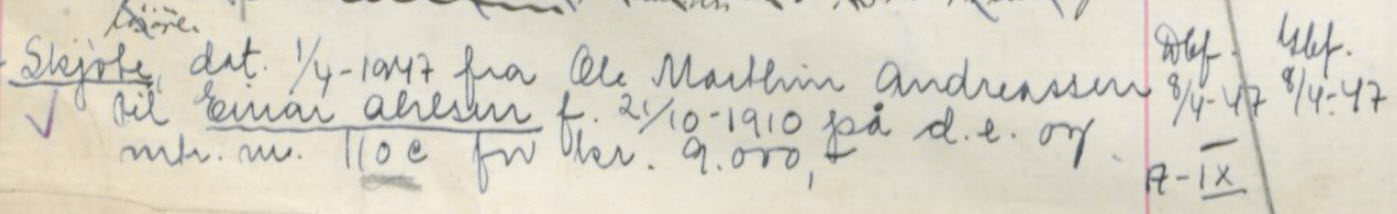 Skjøte, dat. 1/4-1947 fra Ole Marthin Andreassen
til Einar Ahlsen f. 21/10-1910 på d.e. og
mtr. nr. 110e for kr. 9.000,-
Dbf. 8/4-47
Gbf. 8/4-47
A-IX